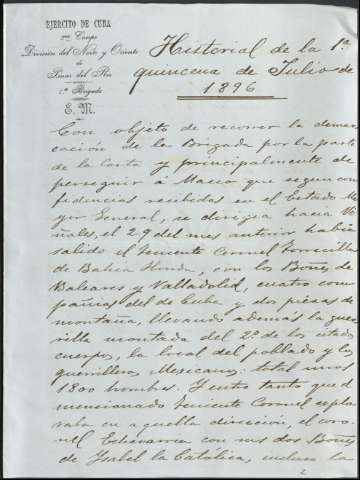 EJERCITO DE CUBA
3er Cuerpo
División del Norte y Oriente
de
Pinar del Río
1ª Brigada
E. M.
Historial de la 1ª
quincena de Julio de
1896
Con objeto de recorrer la demar
cación de la Brigada por la parte
de la Costa y principalmente de
perseguir á Maceo que segun con
fidencias recibidas en el Estado Ma
yor General, se dirigia hacia Vi
ñales, el 29 del mes anterior habia
salido el Teniente Coronel
de Bahia Honda, con los Bones de
Baleares y Valladolid, cuatro com
pañias del de Cuba y dos piezas de
montaña, llevando además la gue
rrilla montada del 2º de los citados
cuerpos, la local del poblado y los
guerrilleros Mexicanos: total unos
1800 hombres. Y entre tanto que el
mencionado Teniente Coronel explo
raba en aquella direccion, el coro
nel Echevarria con sus dos Bones
de Isabel la Católica, incluso la
2